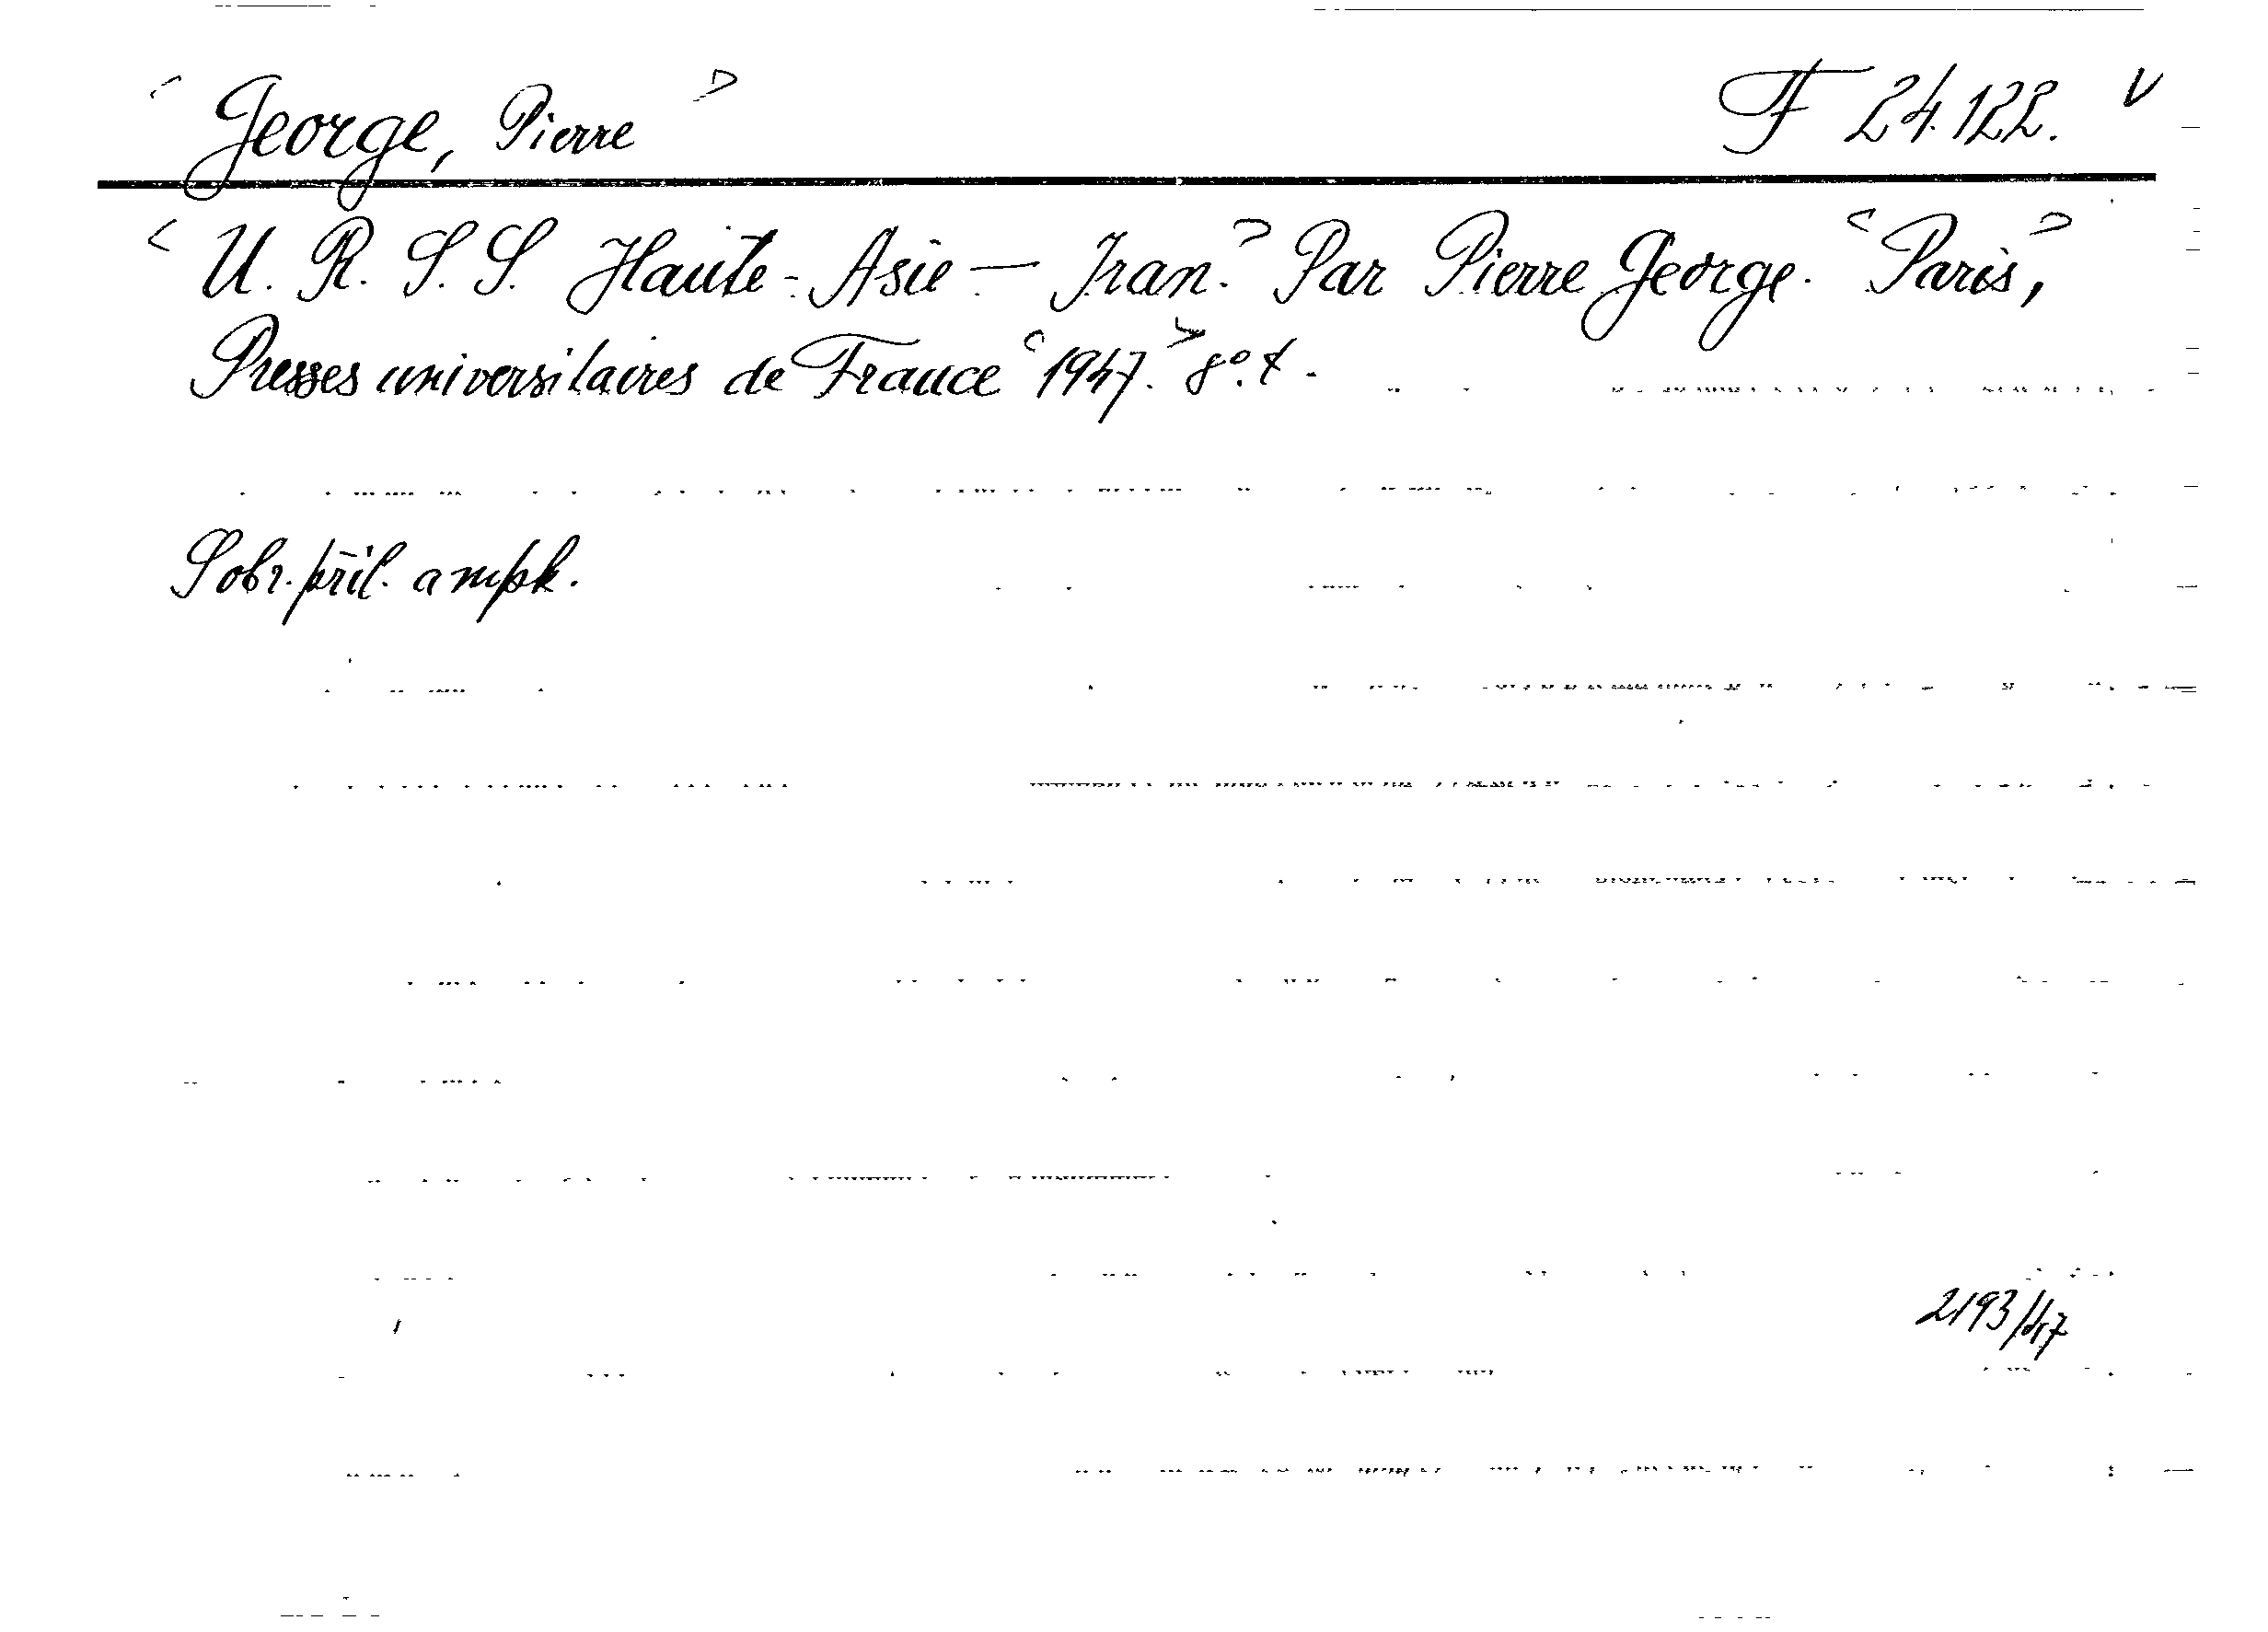 < George, Pierre > F 24.122. V
< U. R. S. S. Haute-Asie — Iran. > Par Pierre George. < Paris, >
Presses universitaires de France < 1947. > 8°.
Sobr. příl. a mpk.
2193/47